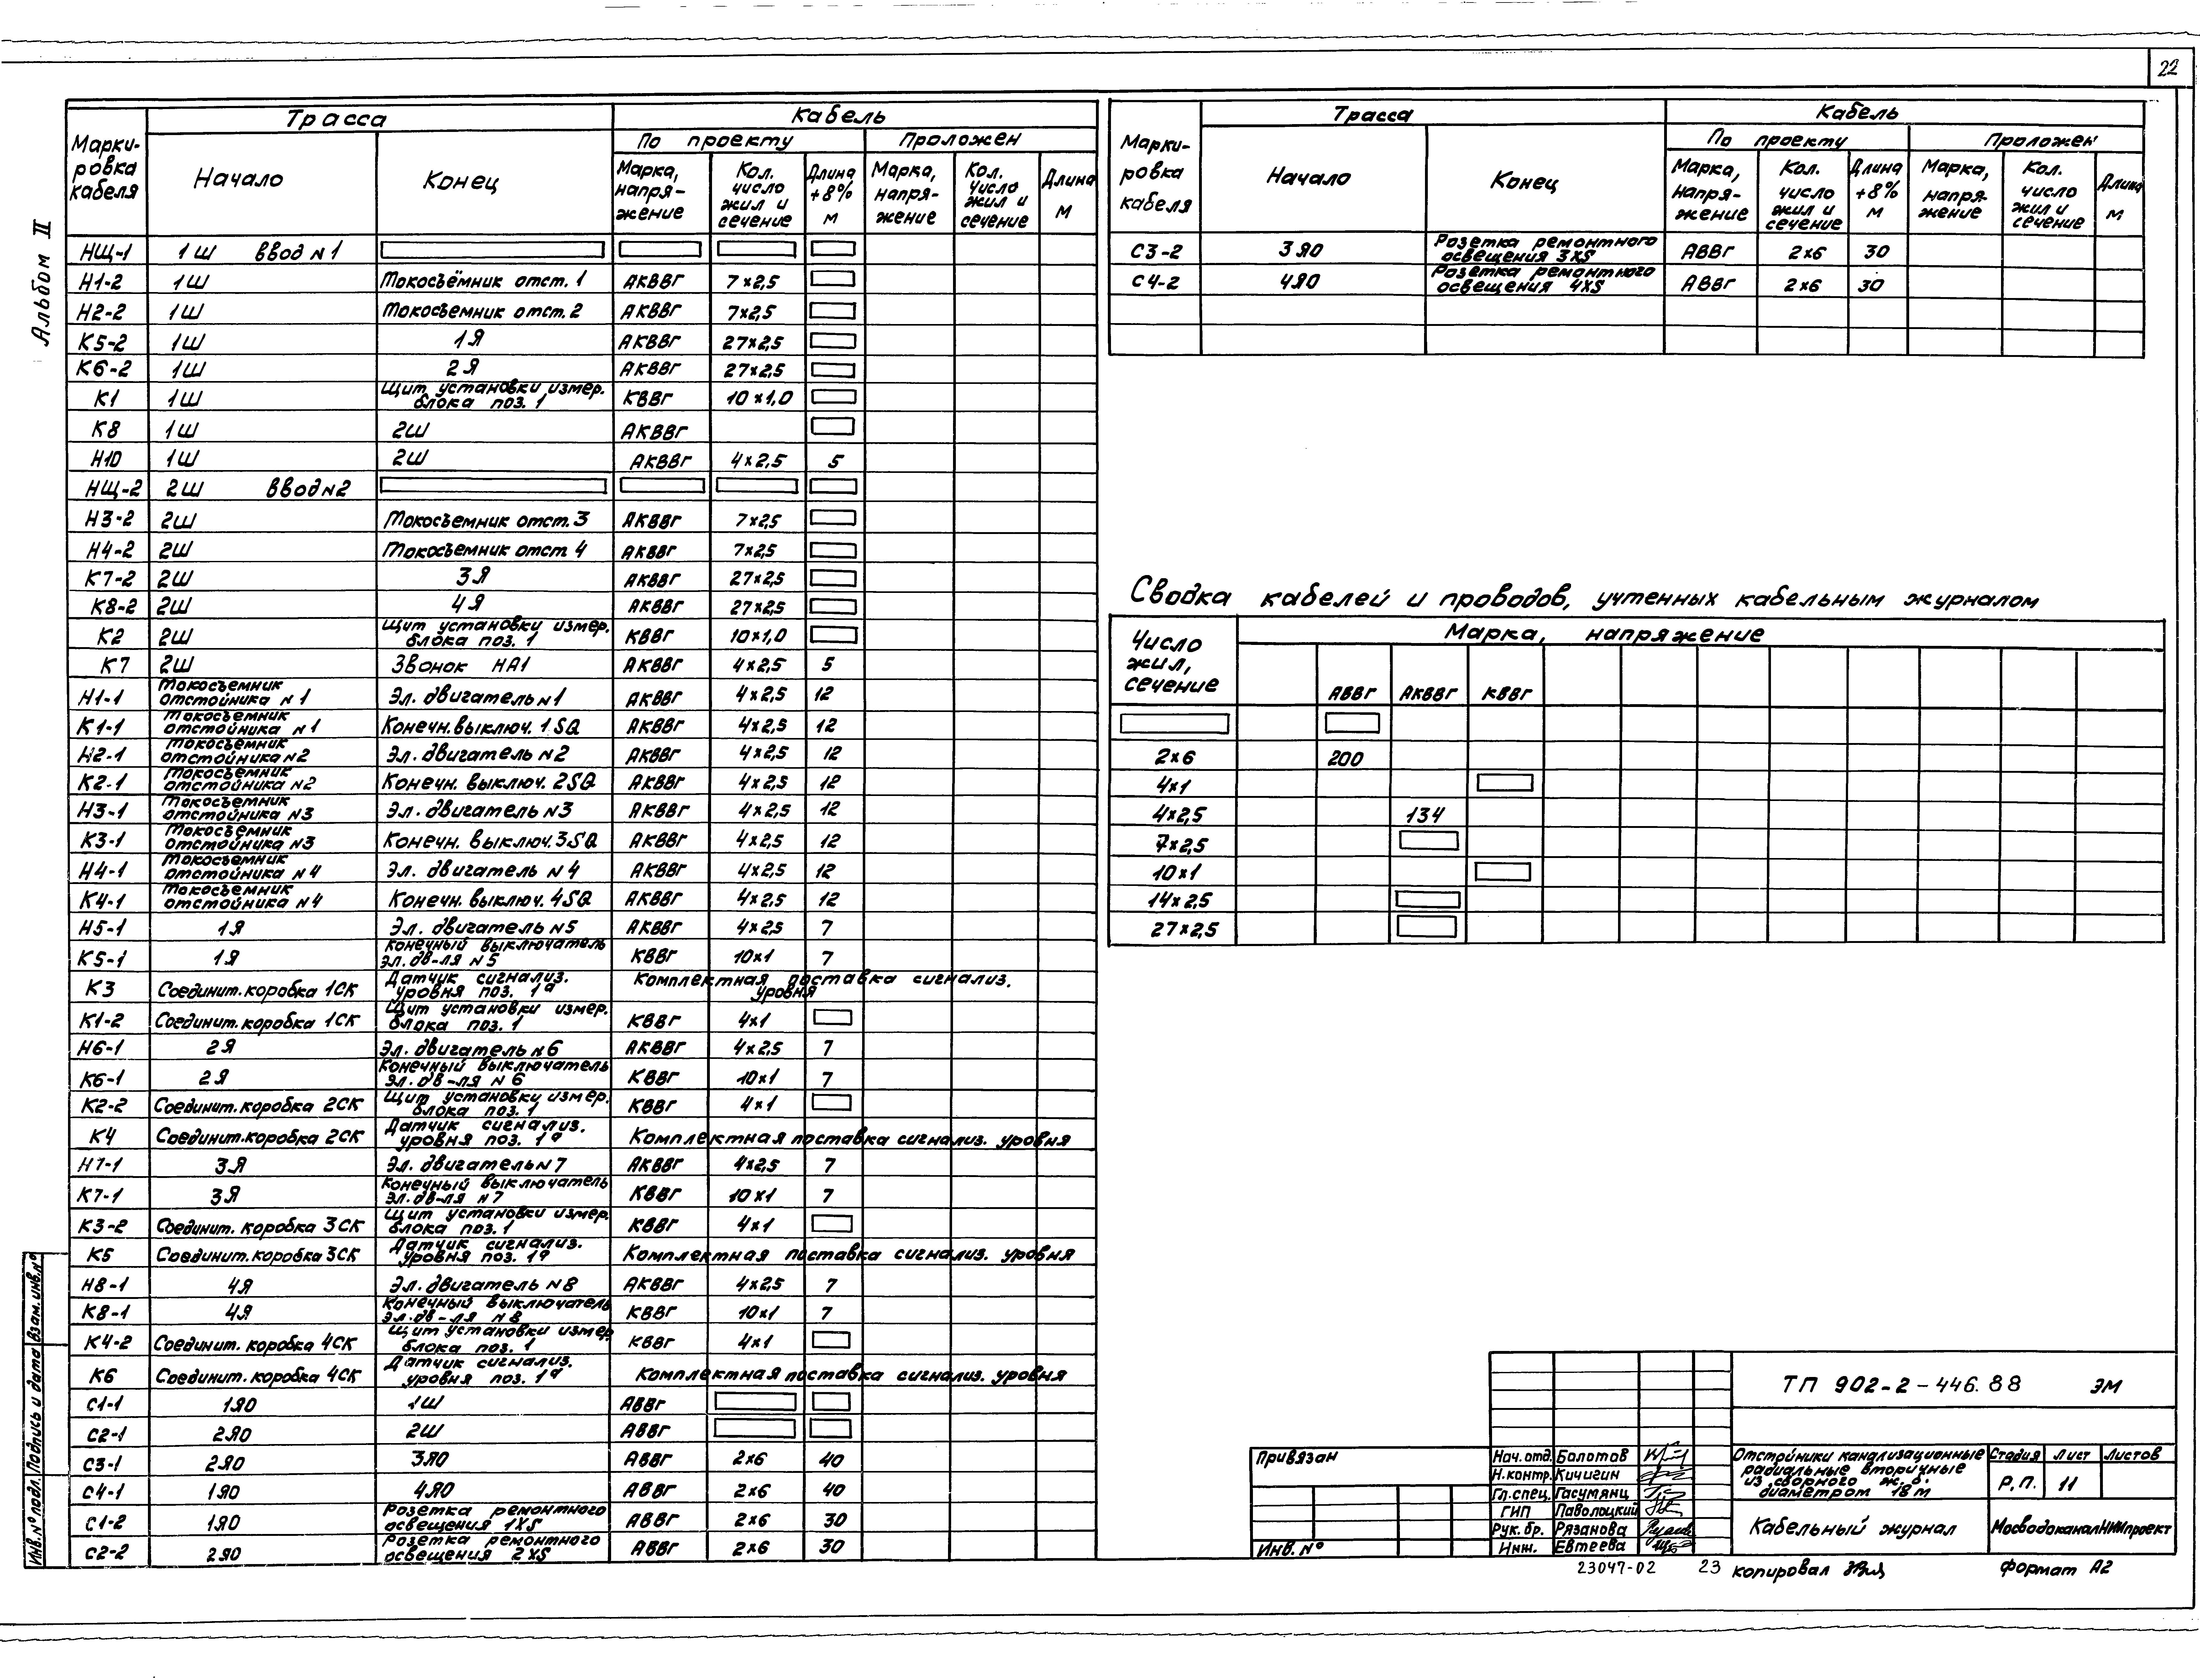 22
Альбом II
Марки-ровка кабеля Трасса Кабель
Начало Конец По проекту Проложен
Марка, напря-жение Кол. число жил и сечение Длина +8% м Марка, напря-жение Кол. число жил и сечение Длина м
НЩ-1 1Ш ввод N1
Н1-2 1Ш Токосъёмник отст. 1 АКВВГ 7×2,5
Н2-2 1Ш Токосъемник отст. 2 АКВВГ 7×2,5
К5-2 1Ш 1Я АКВВГ 27×2,5
К6-2 1Ш 2Я АКВВГ 27×2,5
К1 1Ш Щит установки измер. блока поз. 1 КВВГ 10×1,0
К8 1Ш 2Ш АКВВГ
Н10 1Ш 2Ш АКВВГ 4×2,5 5
НЩ-2 2Ш ввод N2
Н3-2 2Ш Токосъемник отст. 3 АКВВГ 7×2,5
Н4-2 2Ш Токосъемник отст 4 АКВВГ 7×2,5
К7-2 2Ш 3Я АКВВГ 27×2,5
К8-2 2Ш 4Я АКВВГ 27×2,5
К2 2Ш Щит установки измер. блока поз. 1 КВВГ 10×1,0
К7 2Ш Звонок НА1 АКВВГ 4×2,5 5
Н1-1 Токосъемник отстойника N 1 Эл. двигатель N1 АКВВГ 4×2,5 12
К1-1 Токосъемник отстойника N1 Конечн. выключ. 1SQ АКВВГ 4×2,5 12
Н2-1 Токосъемник отстойника N2 Эл. двигатель N2 АКВВГ 4×2,5 12
К2-1 Токосъемник отстойника N2 Конечн. выключ. 2SQ АКВВГ 4×2,5 12
Н3-1 Токосъемник отстойника N3 Эл. двигатель N3 АКВВГ 4×2,5 12
К3-1 Токосъемник отстойника N3 Конечн. выключ. 3SQ АКВВГ 4×2,5 12
Н4-1 Токосъемник отстойника N4 Эл. двигатель N4 АКВВГ 4×2,5 12
К4-1 Токосъемник отстойника N4 Конечн. выключ. 4SQ АКВВГ 4×2,5 12
Н5-1 1Я Эл. двигатель N5 АКВВГ 4×2,5 7
К5-1 1Я Конечный выключатель эл. дв-ля N5 КВВГ 10×1 7
К3 Соединит. коробка 1СК Датчик сигнализ. уровня поз. 1а Комплектная поставка сигнализ. уровня
К1-2 Соединит. коробка 1СК Щит установки измер. блока поз. 1 КВВГ 4×1
Н6-1 2Я Эл. двигатель N6 АКВВГ 4×2,5 7
К6-1 2Я Конечный выключатель эл. дв-ля N6 КВВГ 10×1 7
К2-2 Соединит. коробка 2СК Щит установки измер. блока поз. 1 КВВГ 4×1
К4 Соединит. коробка 2СК Датчик сигнализ. уровня поз. 1а Комплектная поставка сигнализ. уровня
Н7-1 3Я Эл. двигатель N7 АКВВГ 4×2,5 7
К7-1 3Я Конечный выключатель эл. дв-ля N7 КВВГ 10×1 7
К3-2 Соединит. коробка 3СК Щит установки измер. блока поз. 1 КВВГ 4×1
К5 Соединит. коробка 3СК Датчик сигнализ. уровня поз. 1а Комплектная поставка сигнализ. уровня
Н8-1 4Я Эл. двигатель N8 АКВВГ 4×2,5 7
К8-1 4Я Конечный выключатель эл. дв-ля N8 КВВГ 10×1 7
К4-2 Соединит. коробка 4СК Щит установки измер. блока поз. 1 КВВГ 4×1
К6 Соединит. коробка 4СК Датчик сигнализ. уровня поз. 1а Комплектная поставка сигнализ. уровня
С1-1 1ЯО 1Ш АВВГ
С2-1 2ЯО 2Ш АВВГ
С3-1 2ЯО 3ЯО АВВГ 2×6 40
С4-1 1ЯО 4ЯО АВВГ 2×6 40
С1-2 1ЯО Розетка ремонтного освещения 1XS АВВГ 2×6 30
С2-2 2ЯО Розетка ремонтного освещения 2XS АВВГ 2×6 30
Марки-ровка кабеля Трасса Кабель
Начало Конец По проекту Проложен
Марка, напря-жение Кол. число жил и сечение Длина +8% м Марка, напря-жение Кол. число жил и сечение Длина м
С3-2 3ЯО Розетка ремонтного освещения 3XS АВВГ 2×6 30
С4-2 4ЯО Розетка ремонтного освещения 4XS АВВГ 2×6 30
Сводка кабелей и проводов, учтенных кабельным журналом
Число жил, сечение Марка, напряжение
АВВГ АКВВГ КВВГ
2×6 200
4×1
4×2,5 134
7×2,5
10×1
14×2,5
27×2,5
ТП 902-2-446.88 ЭМ
Привязан
Инв. №
Нач. отд. Болотов
Н. контр. Кичигин
Гл. спец. Гасумянц
ГИП Паволоцкий
Рук. бр. Рязанова
Инж. Евтеева
Отстойники канализационные радиальные вторичные из сборного ж. б. диаметром 18 м
Стадия Лист Листов
Р.П. 11
Кабельный журнал
МосводоканалНИИпроект
23047-02 23 копировал
формат А2
Инв. № подл. Подпись и дата Взам. инв. №